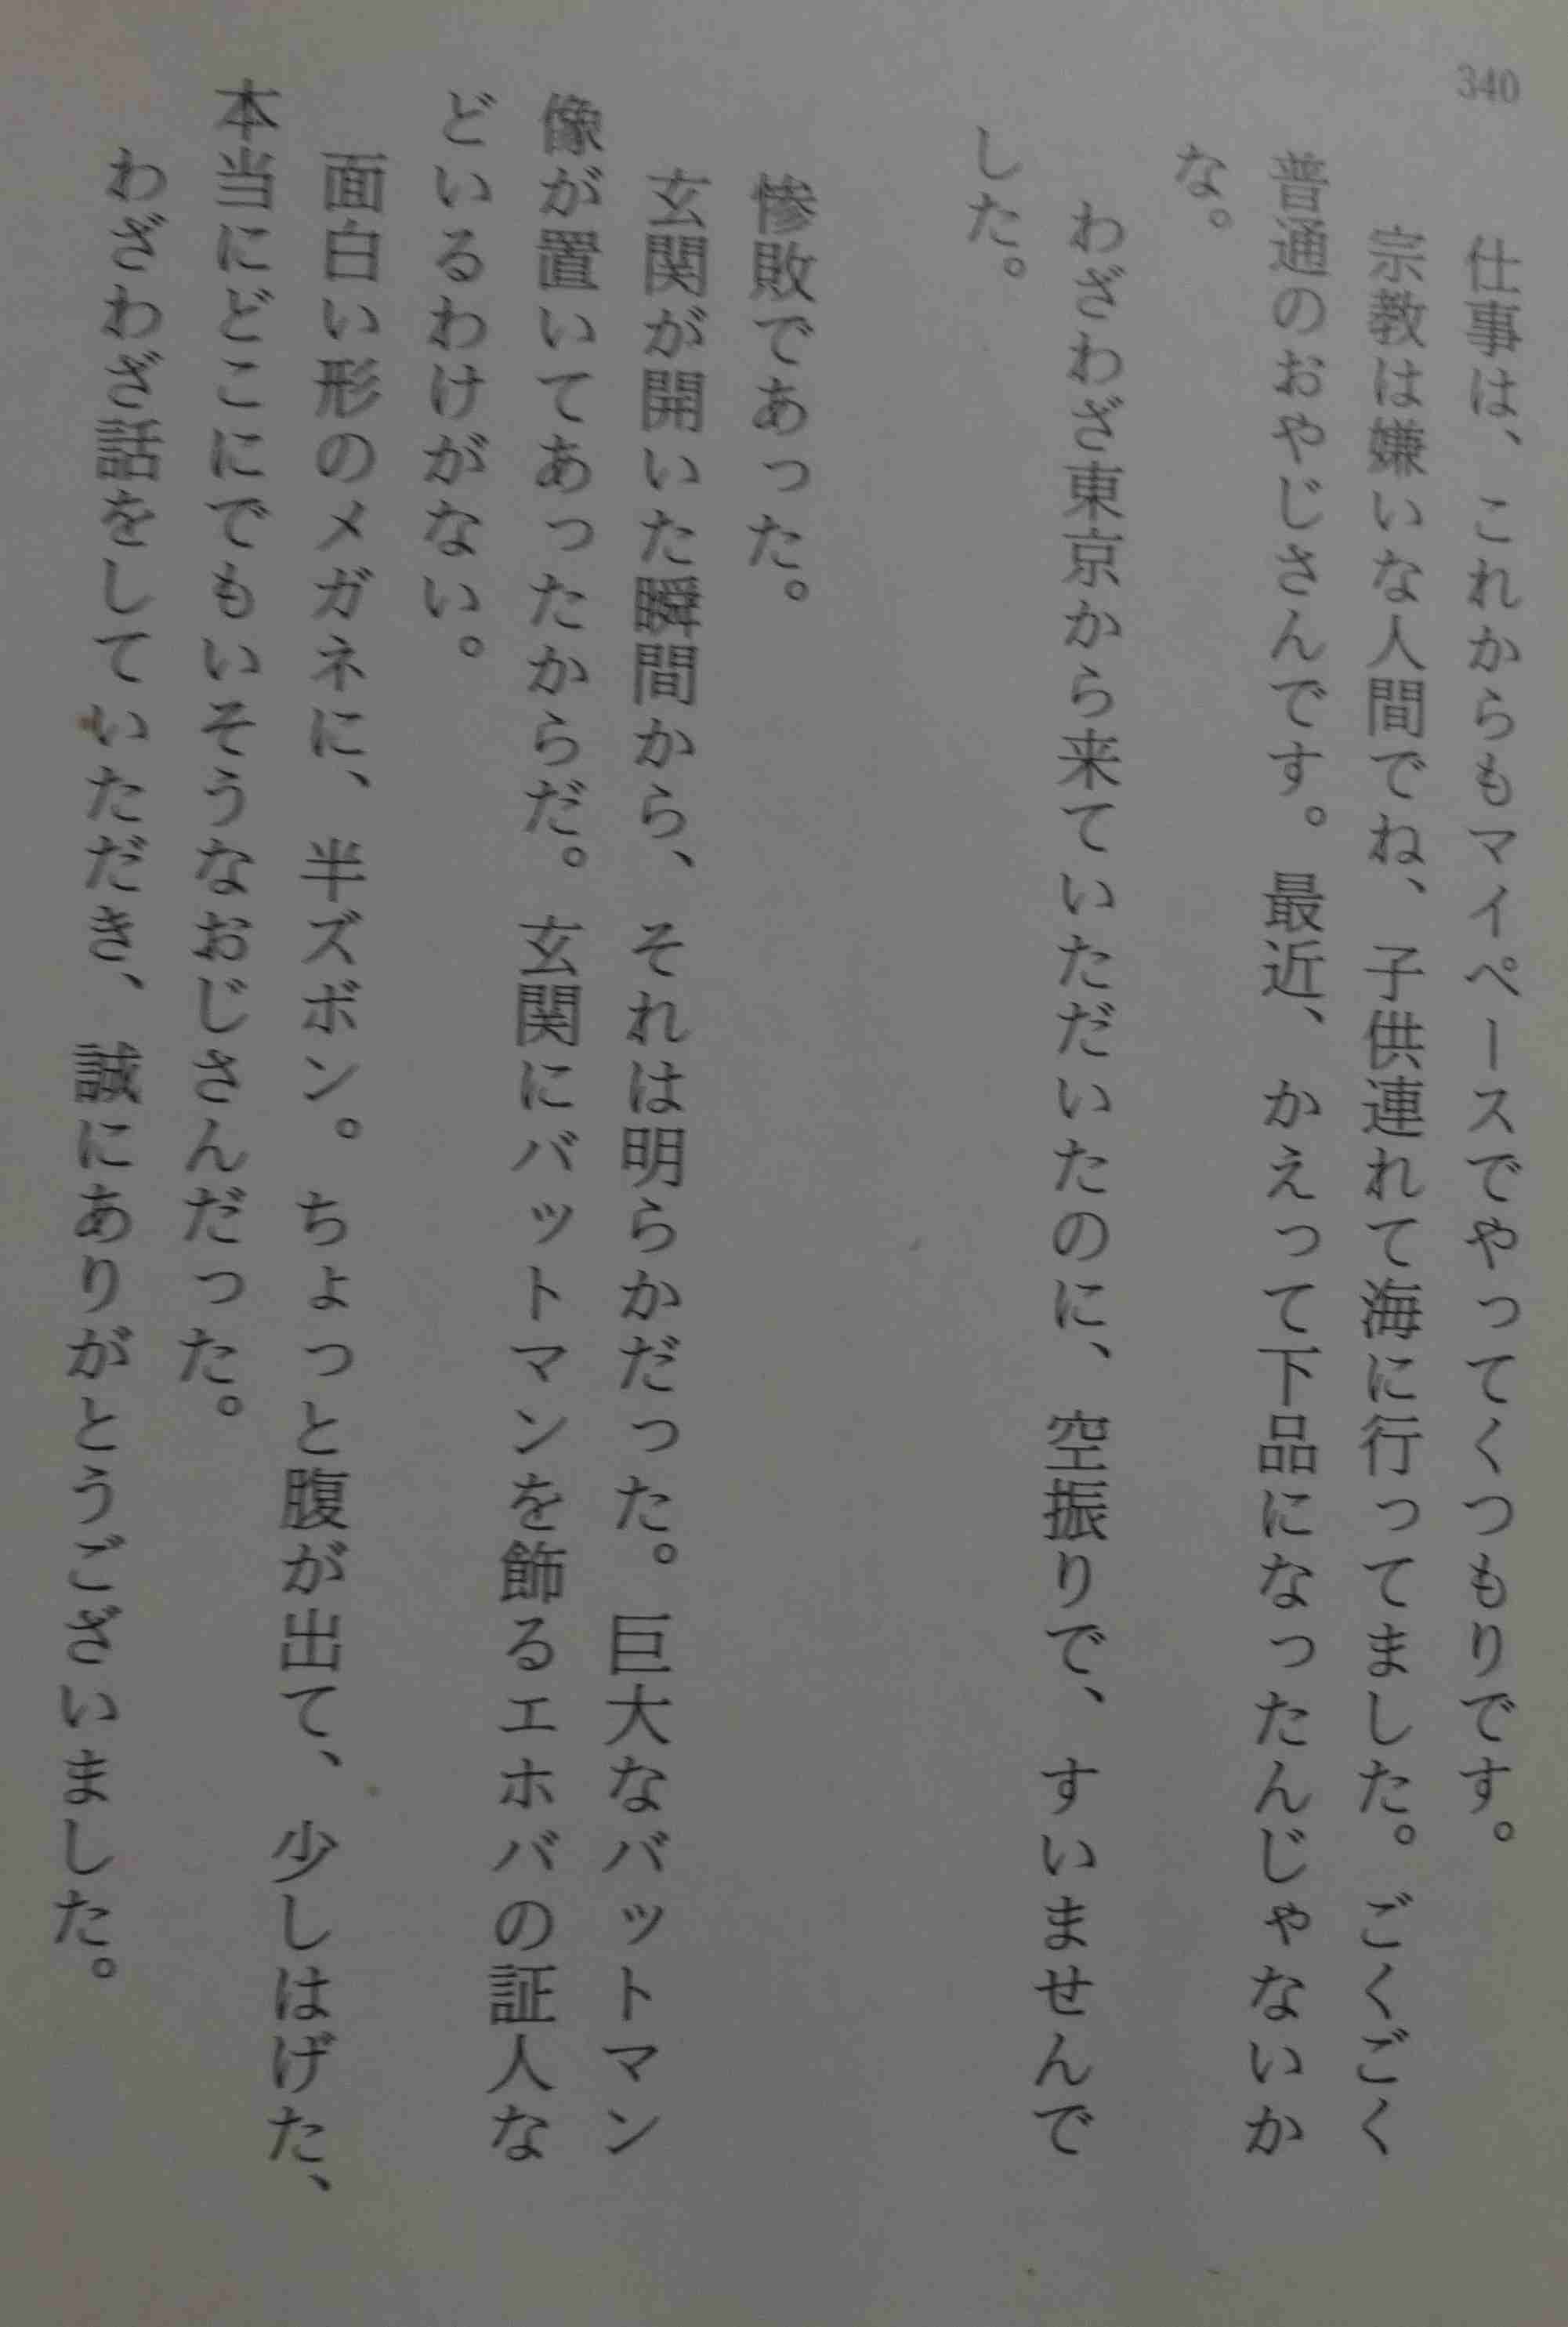 340
仕事は、これからもマイペースでやってくつもりです。
宗教は嫌いな人間でね、子供連れて海に行ってました。ごくごく
普通のおやじさんです。最近、かえって下品になったんじゃないか
な。
わざわざ東京から来ていただいたのに、空振りで、すいませんで
した。
惨敗であった。
玄関が開いた瞬間から、それは明らかだった。巨大なバットマン
像が置いてあったからだ。玄関にバットマンを飾るエホバの証人な
どいるわけがない。
面白い形のメガネに、半ズボン。ちょっと腹が出て、少しはげた、
本当にどこにでもいそうなおじさんだった。
わざわざ話をしていただき、誠にありがとうございました。